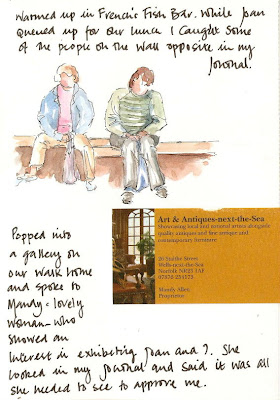 Warmed up in French's Fish Bar. While Joan
queued up for our lunch I caught some
of the people on the wall opposite in my
journal.
Art & Antiques-next-the-Sea
Showcasing local and national artists alongside
quality antiques and fine antique and
contemporary furniture
20 Staithe Street
Wells-next-the-Sea
Norfolk NR23 1AF
Mandy Allen
Proprietor
Popped into
a gallery on
our walk home
and spoke to
Mandy - lovely
woman - who
showed an
interest in exhibiting Joan and I. She
looked in my journal and said it was all
she needed to see to approve me.